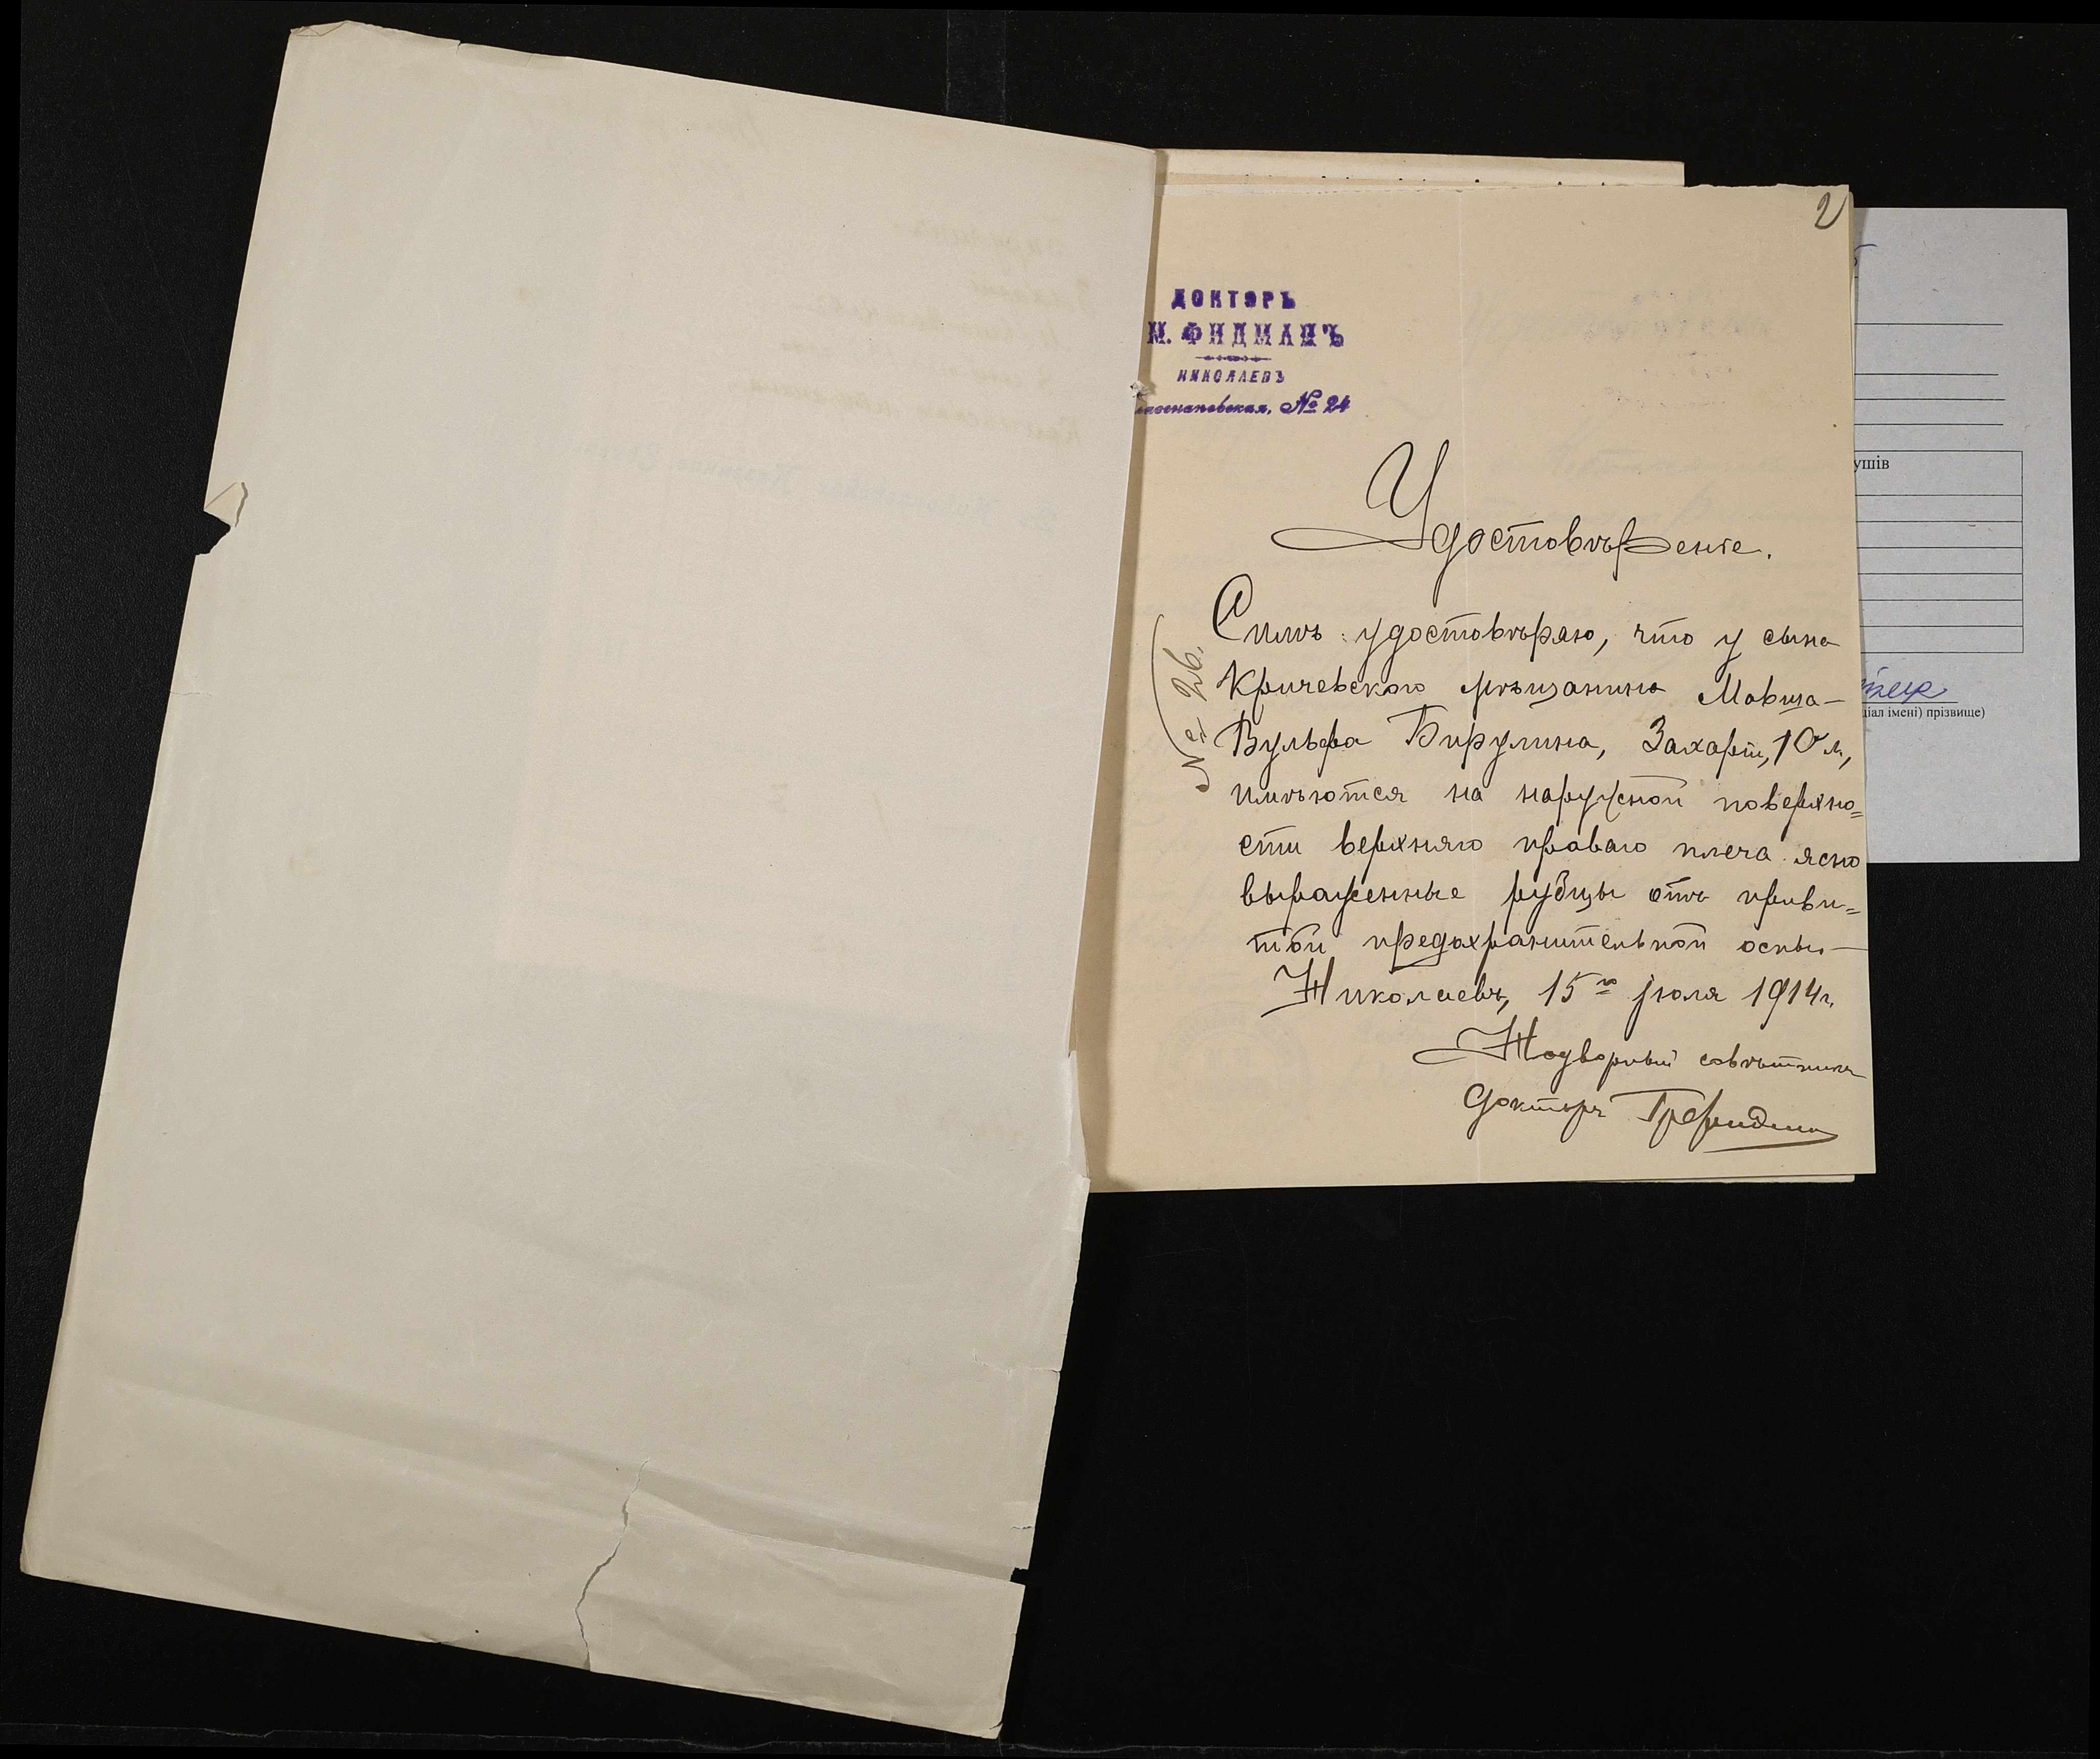 2
ДОКТОРЪ
М. ФИДМАНЪ
НИКОЛАЕВЪ
№ 24
Удостовѣреніе.
№ 26.
Симъ удостовѣряю, что у сына
Кричевскаго мѣщанина Мовша-
Вульфа Бирулина, Захарія, 10 л,
имѣются на наружной поверхно=
сти верхняго праваго плеча ясно
выраженные рубцы отъ приви=
той предохранительной оспы.—
Николаевъ, 15го Іюля 1914 г.
Надворный совѣтникъ
Докторъ
ушів
ціал імені) прізвище)